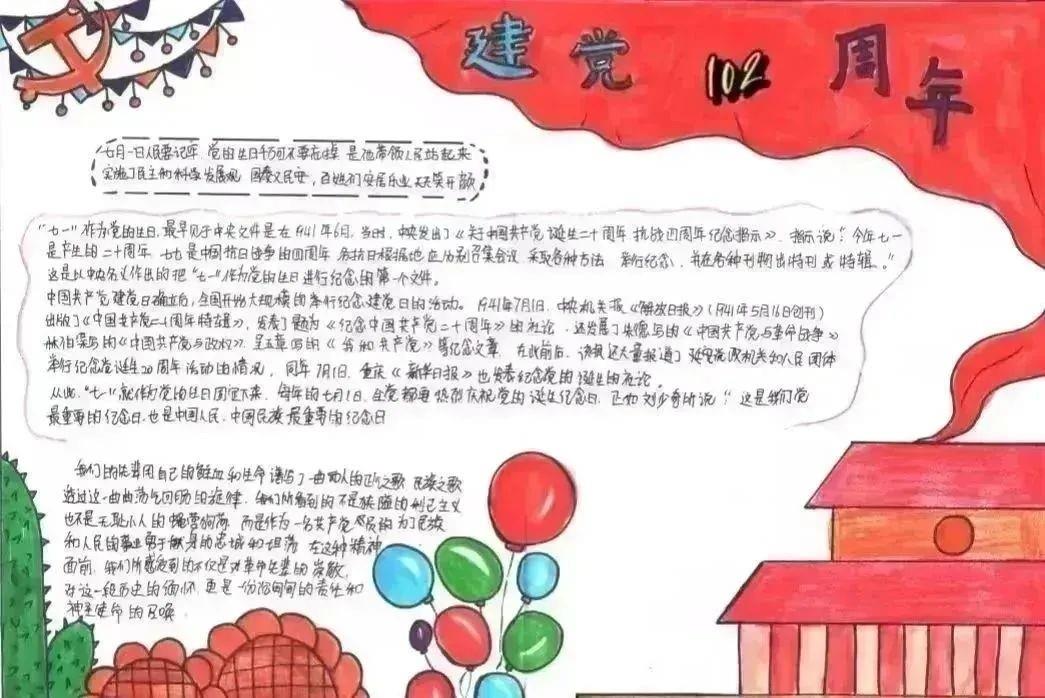 建党102周年
七月一日人民要记牢 党的生日千万可不要忘掉 是他带领人民站起来
实施了民主和科学发展观 国泰又民安，百姓们安居乐业天天笑开颜
“七一”作为党的生日，最早见于中央文件是在1941年6月。当时，中央发出了《关于中国共产党诞生二十周年 抗战四周年纪念指示》，指示说“今年七一
是产生的二十周年 七七是中国抗日战争的四周年 各抗日根据地应分别召集会议 采取各种方法 举行纪念，并在各种刊物出特刊或特辑。”
这是以中央名义作出的把“七一”作为党的生日进行纪念的第一个文件。
中国共产党建党日确立后，全国开始大规模的举行纪念建党日的活动。1941年7月1日，中央机关报《解放日报》（1941年5月16日创刊）
出版了《中国共产党二十周年特辑》，发表了题为《纪念中国共产党二十周年》的社论，还发展了朱德写的《中国共产党与革命战争》
林伯渠写的《中国共产党与政权》，吴玉章写的《我和共产党》等纪念文章，在此前后，该报还大量报道了延安党政机关和人民团体
举行纪念党诞生20周年活动的情况，同年7月1日，重庆《新华日报》也发表纪念党的诞生的社论。
从此，“七一”就作为党的生日固定下来，每年的七月1日，全党都要热烈庆祝党的诞生纪念日，正如刘少奇所说“这是我们党
最重要的纪念日，也是中国人民，中国民族最重要的纪念日
我们的先辈用自己的鲜血和生命谱写了一曲动人的正气之歌 民族之歌
透过这一曲曲荡气回肠的旋律，我们所看到的不是狭隘的利己主义
也不是无耻小人的蝇营狗苟 而是作为一名共产党人员的为了民族
和人民的事业勇于献身的忠诚和坦荡 在这种精神
面前，我们所感受到的不仅是对革命先辈的崇敬，
对这一段历史的缅怀，更是一份沉甸甸的责任和
神圣使命的召唤。